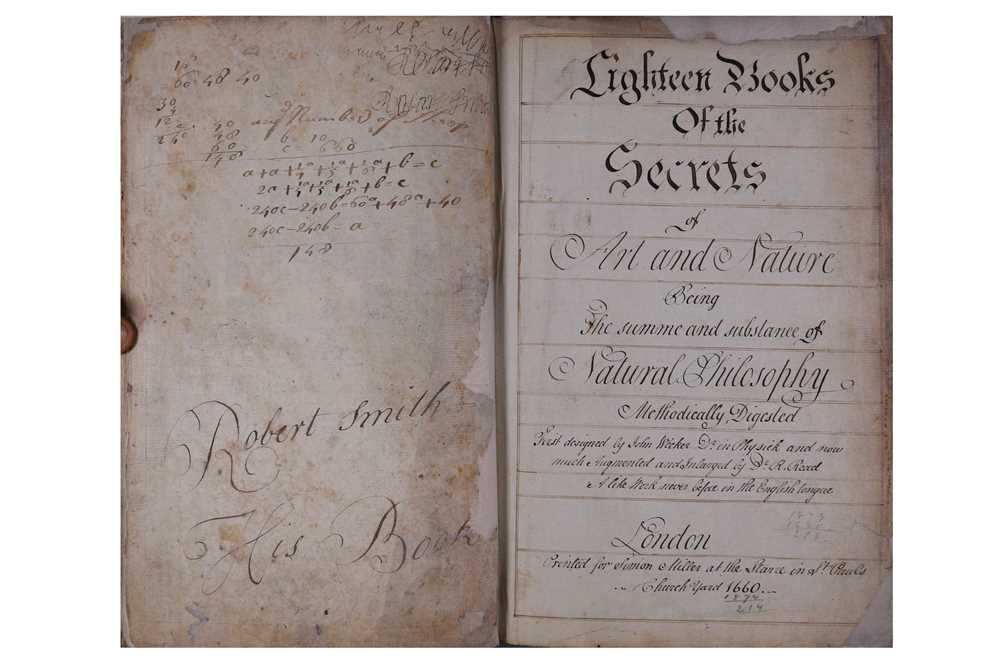 60 48 40
30
12
240
40
48
60
148
any Number of Sheep
b 10
c = 660
a+a+1a/4+1a/5+1a/6+b=c
2a+1a/4+1a/5+1a/6+b=c
240c-240b=60a+48a+40
240c-240b= a
148
Robert Smith
His Book
Eighteen Books
Of the
Secrets
of
Art and Nature
Being
The summe and substance of
Natural Philosophy
Methodically Digested
First designed by John Wecker Dr in Physick and now
much Augmented and Inlarged by Dr R. Read
A like Work never before in the English tongue
London
Printed for Simon Miller at the Starre in St Pauls
Church Yard 1660
1874
214